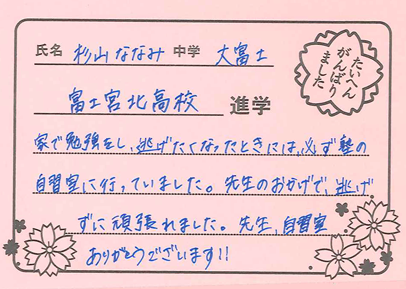 氏名 杉山ななみ 中学 大富士
たいへん
がんばり
ました
富士宮北高校 進学
家で勉強をし、逃げたくなったときには、必ず塾の
自習室に行っていました。先生のおかげで、逃げ
ずに頑張れました。先生、自習室
ありがとうございます!!